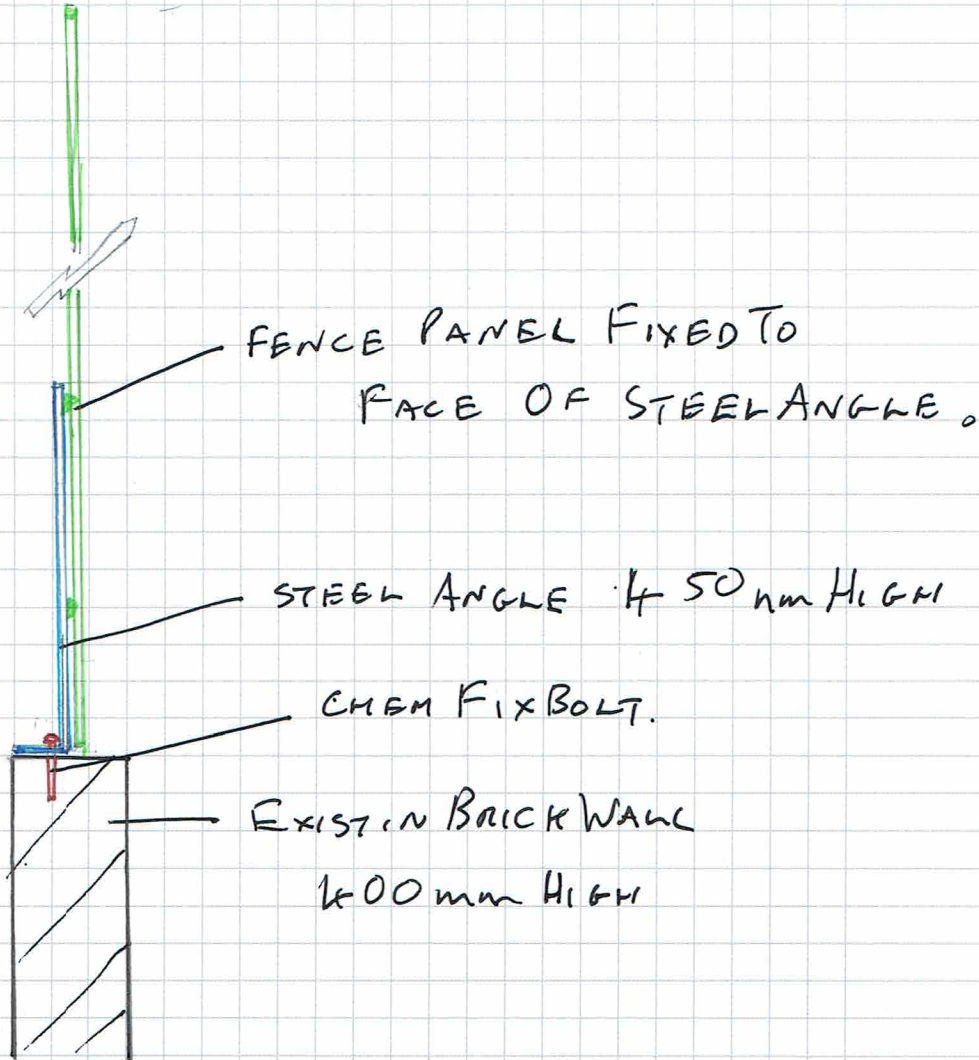 FENCE PANEL FIXED TO
FACE OF STEEL ANGLE.
STEEL ANGLE 450mm HIGH
CHEM FIX BOLT.
EXISTIN BRICK WALL
400mm HIGH